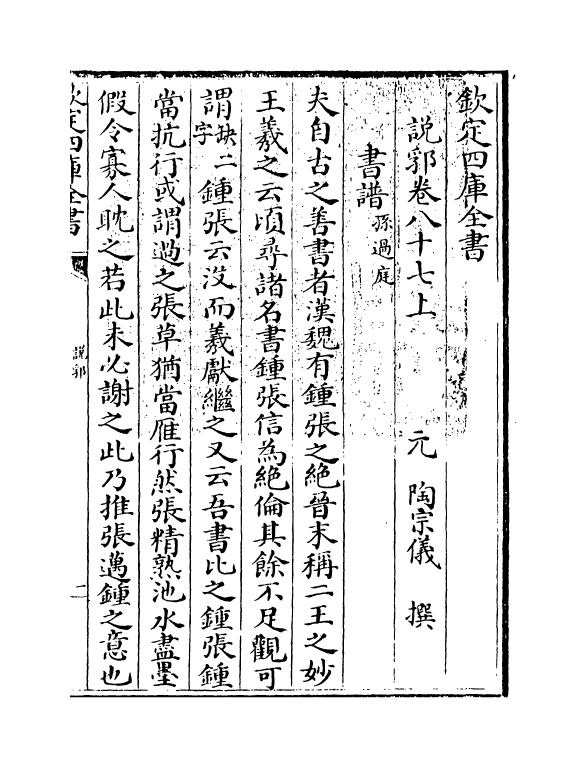 欽定四庫全書
說郛卷八十七上
元 陶宗儀 撰
書譜 孫過庭
夫自古之善書者漢魏有鍾張之絶晉末稱二王之妙
王羲之云頃尋諸名書鍾張信為絶倫其餘不足觀可
謂缺二字鍾張云沒而羲獻繼之又云吾書比之鍾張鍾
當抗行或謂過之張草猶當雁行然張精熟池水盡墨
假令寡人耽之若此未必謝之此乃推張邁鍾之意也
欽定四庫全書
說郛
二